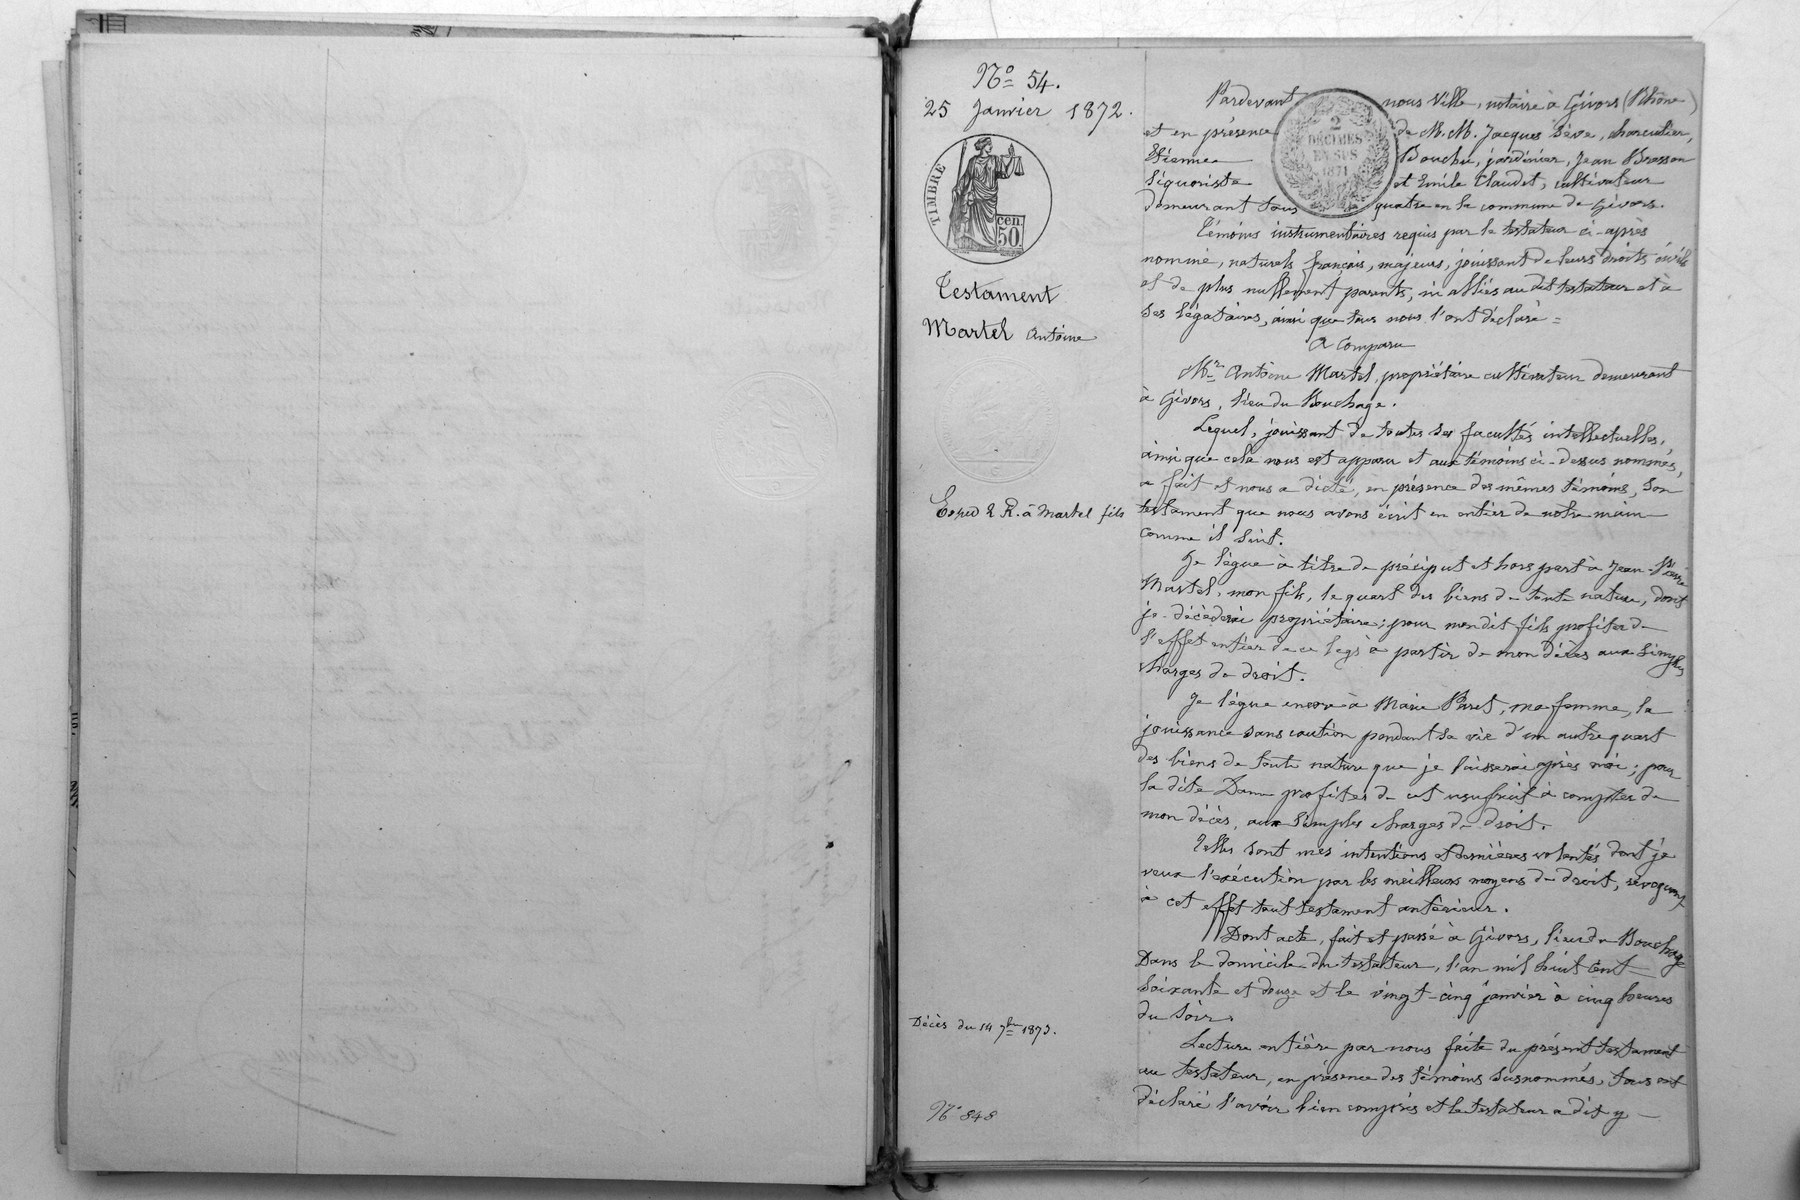 No 54.
25 Janvier 1872.
TIMBRE
cen
50
Testament
Martel Antoine
Exped 2 R. à Martel fils
Décès du 14 7bre 1873.
No 848
2
DÉCIMES
EN SUS
1871
Pardevant nous Ville, notaire à Givors (Rhône)
et en présence de M.M. Jacques Sève, charcutier,
Etienne Bouchu, jardinier, Jean Bresson
liquoriste et Emile Claudet, cultivateur
demeurant tous quatre en la commune de Givors.
Témoins instrumentaires requis par le testateur ci-après
nommé, naturels français, majeurs, jouissant de leurs droits civils
et de plus nullement parents, ni alliés au dit testateur et à
ses légataires, ainsi que tous nous l'ont déclaré =
A Comparu
Mr Antoine Martel, propriétaire cultivateur demeurant
à Givors, lieu du Bouchage.
Lequel, jouissant de toutes ses facultés intellectuelles,
ainsi que cela nous est apparu et aux témoins ci-dessus nommés,
a fait et nous a dicté, en présence des mêmes témoins, son
testament que nous avons écrit en entier de notre main
comme il suit.
Je lègue à titre de préciput et hors part à Jean-Pierre
Martel, mon fils, le quart des biens de toute nature, dont
je décèderai propriétaire; pour mon dit fils profiter de
l'effet entier de ce legs à partir de mon décès aux simples
charges de droit.
Je lègue encore à Marie Paret, ma femme, la
jouissance sans caution pendant sa vie d'un autre quart
des biens de toute nature que je laisserai après moi; pour
la dite Dame profiter de cet usufruit à compter de
mon décès, aux simples charges de droit.
Telles sont mes intentions et dernières volontés dont je
veux l'exécution par les meilleurs moyens de droit, révoquant
à cet effet tout testament antérieur.
Dont acte, fait et passé à Givors, lieu du Bouchage
Dans le domicile du testateur, l'an mil huit cent
soixante et douze et le vingt-cinq janvier à cinq heures
du soir.
Lecture entière par nous faite du présent testament
au testateur, en présence des témoins susnommés, tous ont
déclaré l'avoir bien compris et le testateur a dit y